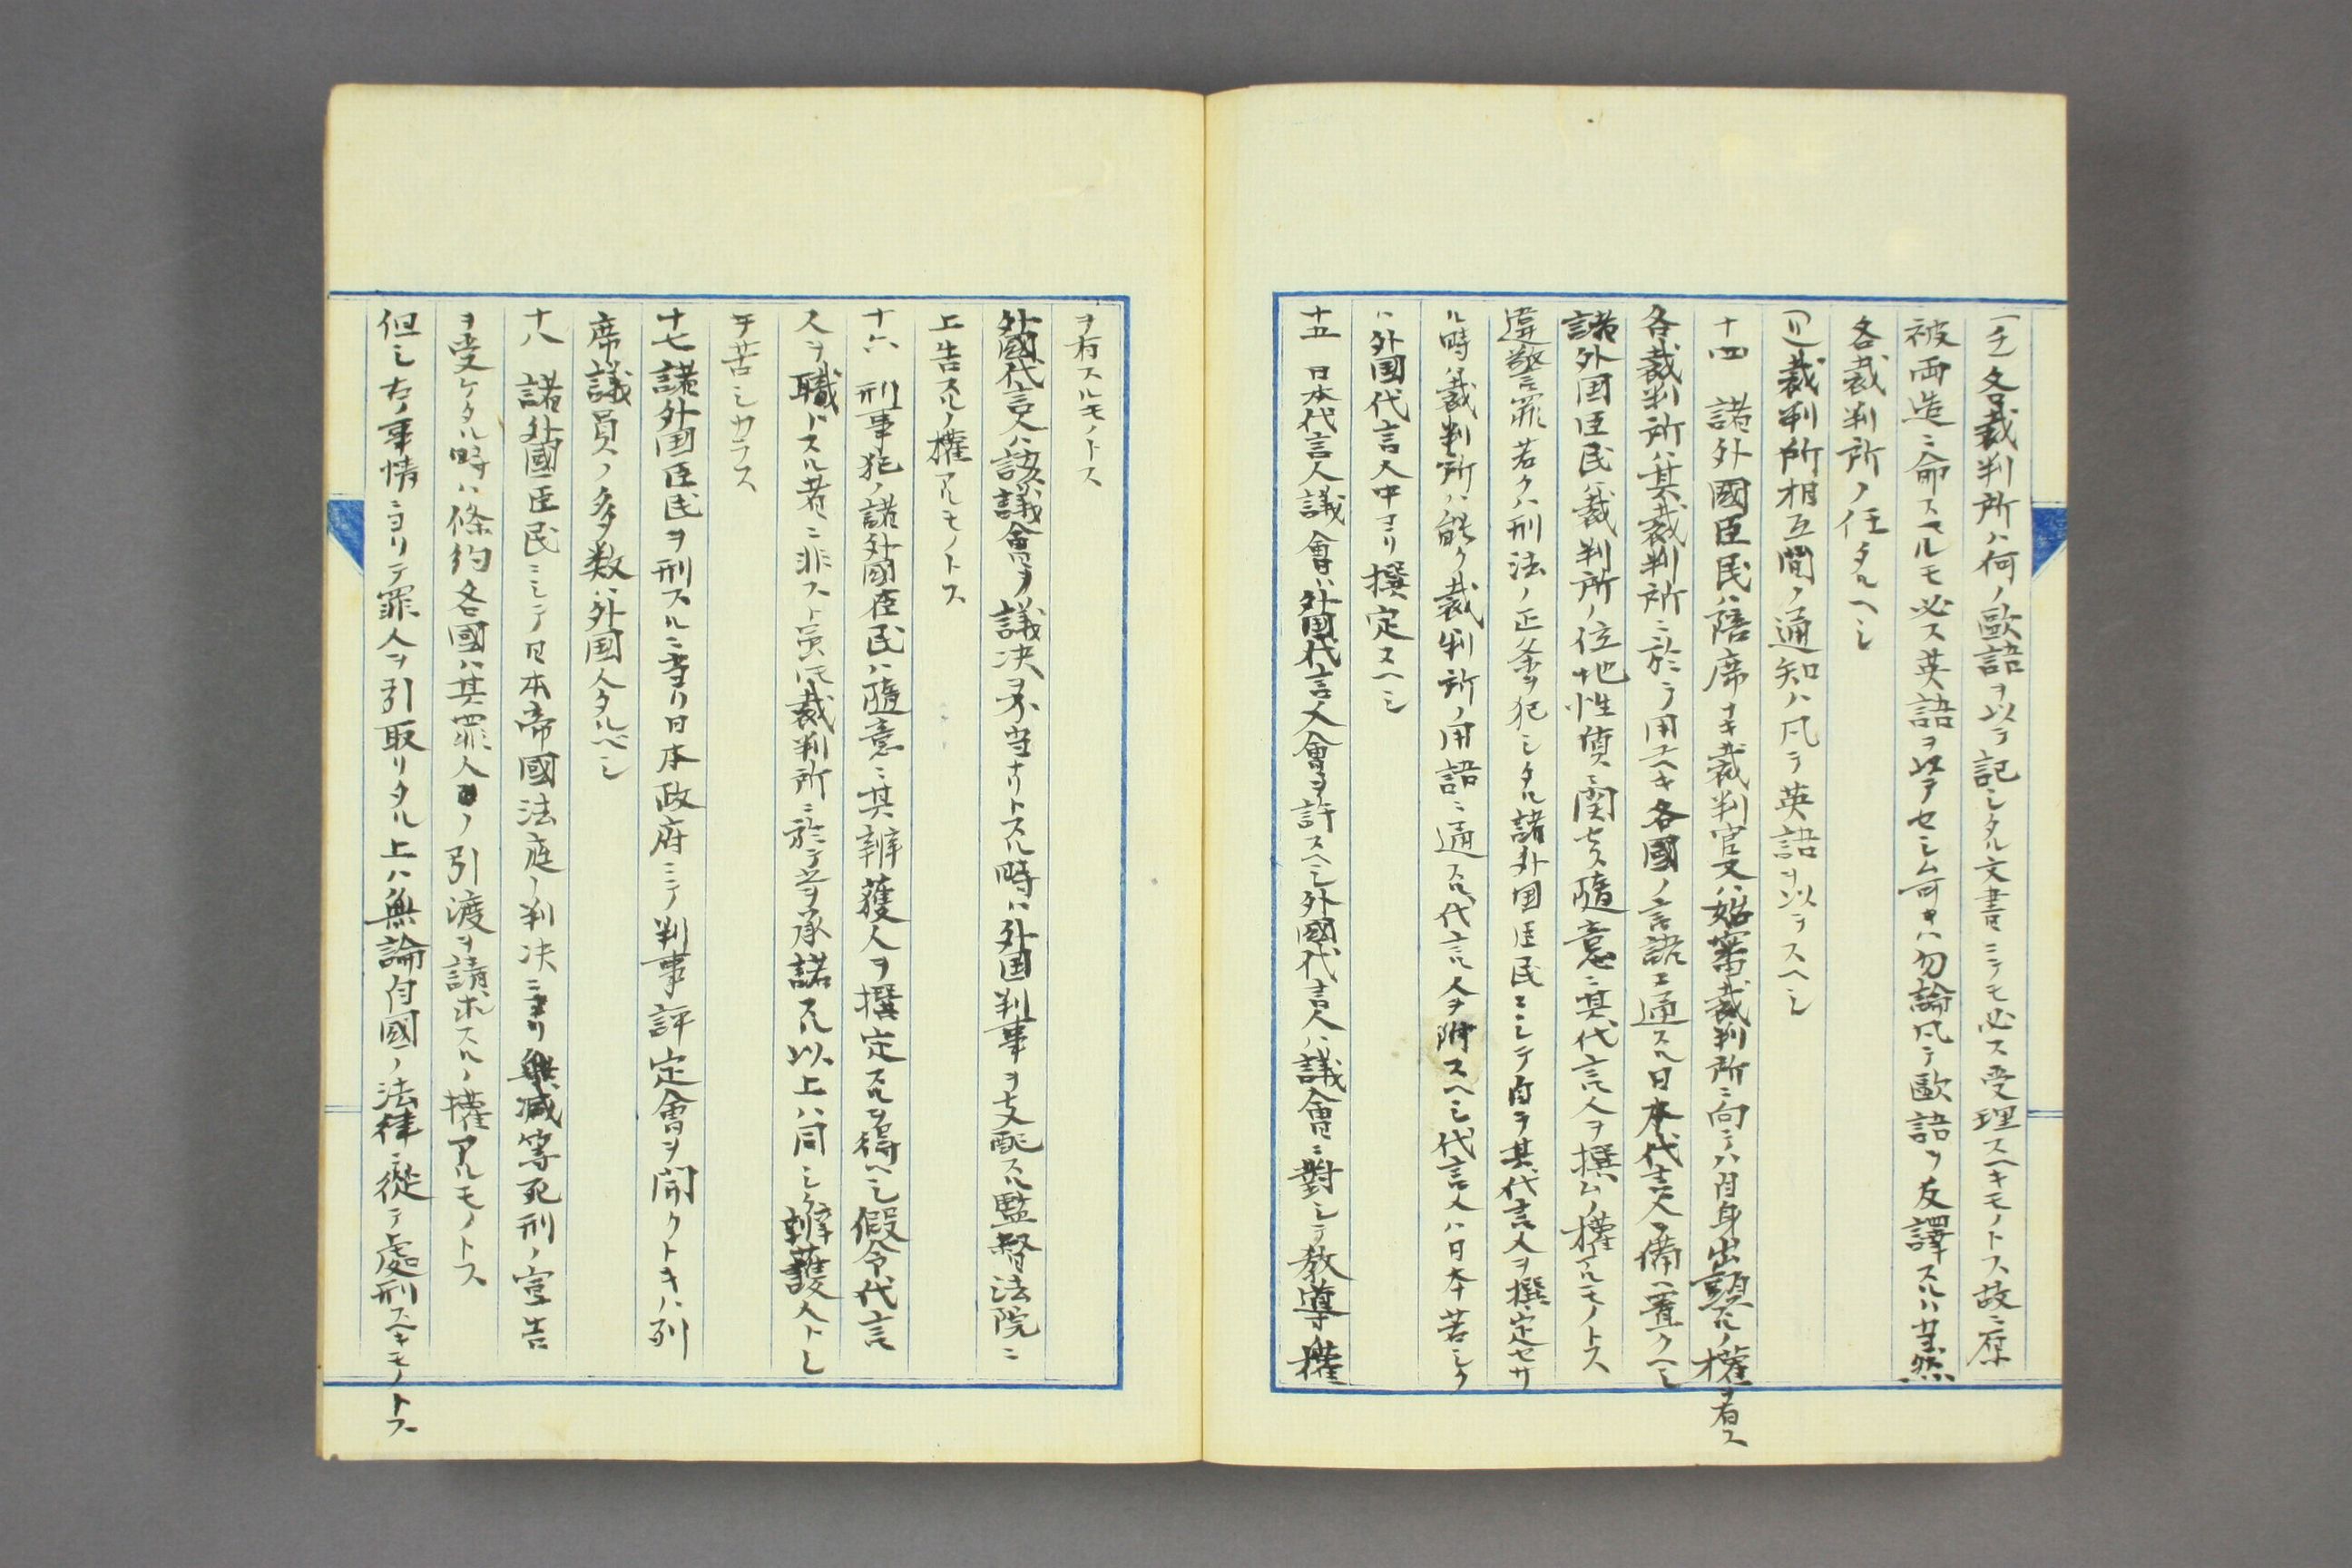 (チ)各裁判所ハ何ノ歐語ヲ以テ記シタル文書ニテモ必ス受理スヘキモノトス故ニ原
被両造ニ命スルモ必ス英語ヲ以テセシム可キハ勿論凡テ歐語ヲ反譯スルハ当然
各裁判所ノ任タルヘシ
(リ)裁判所相互間ノ通知ハ凡テ英語ヲ以テスヘシ
十四 諸外國臣民ハ陪席ナキ裁判官又ハ始審裁判所ニ向テハ自身出頭スルノ権ヲ有ス
各裁判所ハ其裁判所ニ於テ用ユヘキ各國ノ言語ニ通スル日本代言人ヲ備ヘ置クヘシ
諸外国臣民ハ裁判所ノ位地性質ニ関セス随意ニ其代言人ヲ撰ムノ権アルモノトス
違警罪若クハ刑法ノ正条ヲ犯シタル諸外国臣民ニシテ自ラ其代言人ヲ撰定セサ
ル時ハ裁判所ハ能ク裁判所ノ用語ニ通スル代言人ヲ附スヘシ代言人ハ日本若シク
ハ外国代言人中ヨリ撰定スヘシ
十五 日本代言人議會ハ外国代言人入會ヲ許スヘシ外國代言人ハ議會ニ對シテ教導権
ヲ有スルモノトス
外國代言人ハ該議會ヲ議决ヲ不当ナリトスル時ハ外国判事ヲ支配スル監督法院ニ
上告スルノ権アルモノトス
十六 刑事犯ノ諸外國臣民ハ随意ニ其辨護人ヲ撰定スルヲ得ヘシ假令代言
人ヲ職トスル者ニ非スト虽𪜈裁判所ニ於テ之ヲ承諾スル以上ハ同シク辨護人トシ
テ苦シカラス
十七 諸外国臣民ヲ刑スルニ当リ日本政府ニテ判事評定會ヲ開クトキハ列
席議員ノ多数ハ外国人タルベシ
十八 諸外國臣民ニシテ日本帝國法庭ノ判决ニ由リ無減等死刑ノ宣告
ヲ受ケタル時ハ條約各國ハ其罪人ノ引渡ヲ請求スルノ権アルモノトス
但シ右ノ事情ニヨリテ罪人ヲ引取リタル上ハ無論自國ノ法律ニ從テ處刑スヘキモノトス